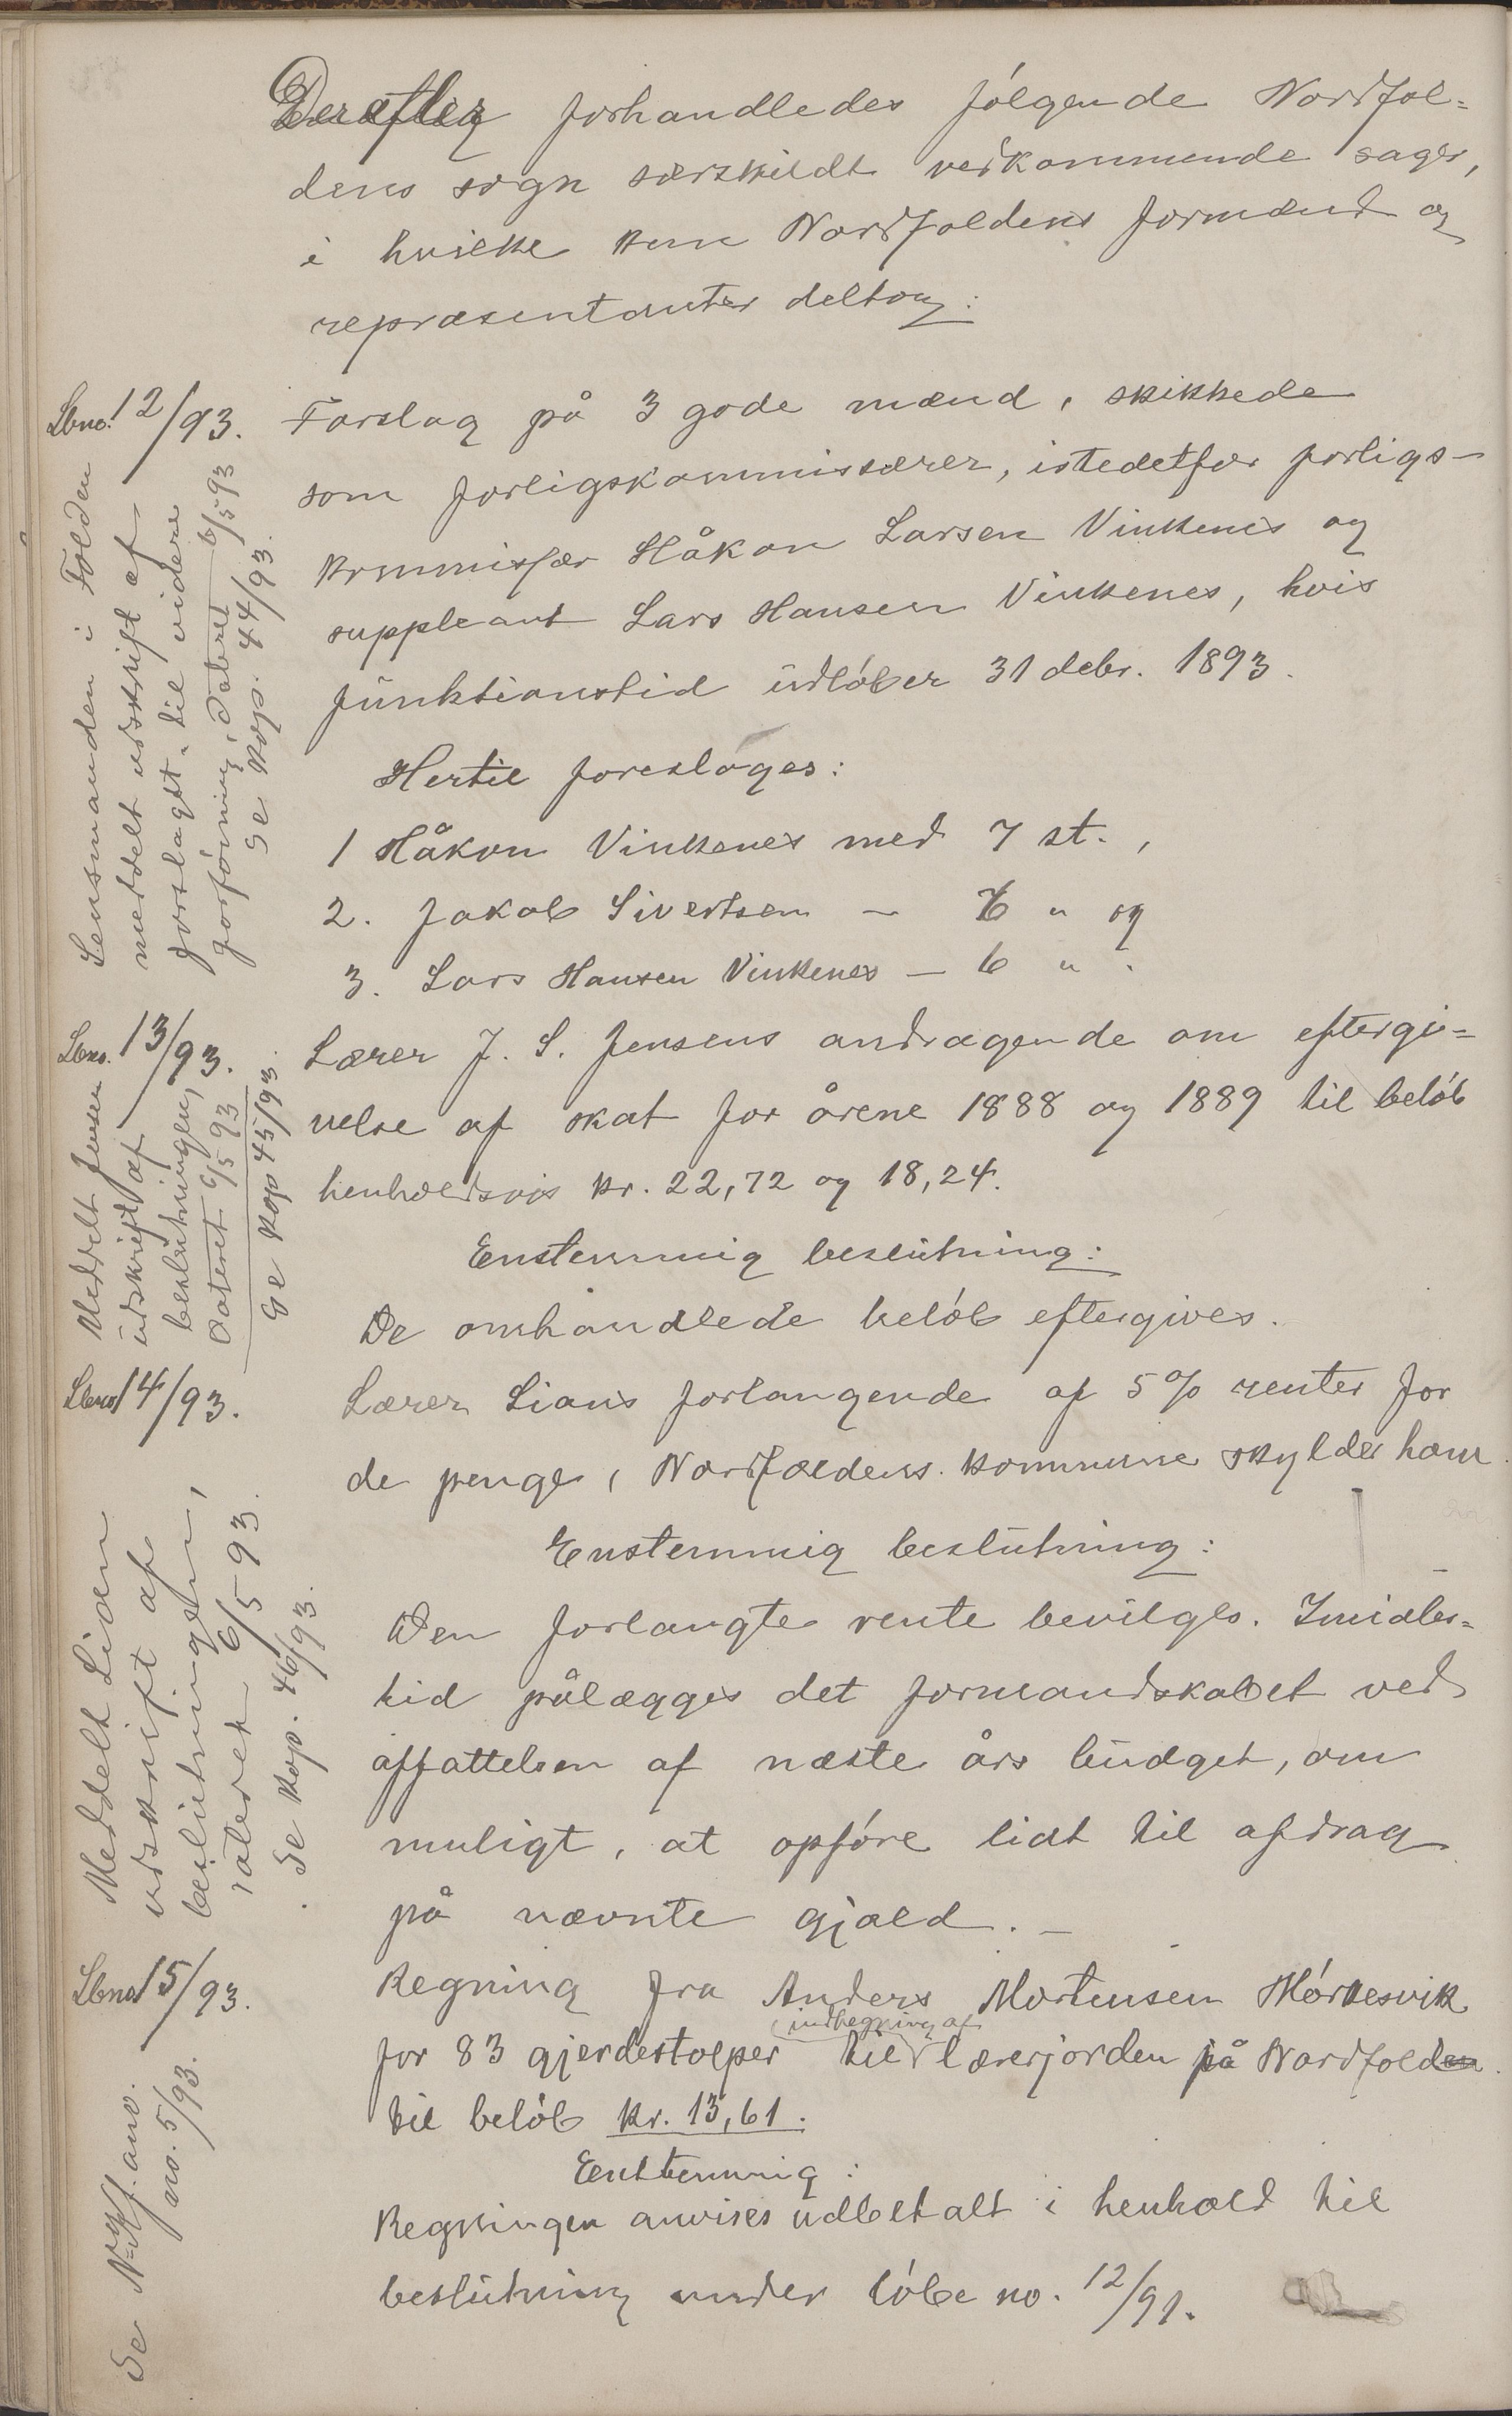 Derefter forhandledes følgende Nordfol-
dens sogn særskildt vedkommende sager,
i hvilke kun Nordfoldens formænd og
repræsentanter deltog:
Lbno. 12/93.
Forslag på 3 gode mænd, skikkede
som forligskommissærer, istedetfor forligs-
kommissær Håkon Larsen Vinkenes og
suppleant Lars Hansen Vinkenes, hvis
funktionstid udløber 31 debr. 1893.
Lensmanden i Folden
meddelt udskrift af
forslaget til videre
forføining, dateret 6/5 93
Se kop. 44/93.
Hertil foresloges:
1 Håkon Vinkenes med 7 st.,
2. Jakob Sivertsen — 6 " og
3. Lars Hansen Vinkenes — 6 " .
Lbno. 13/93.
Lærer J. S. Jensens andragende om eftergi-
velse af skat for årene 1888 og 1889 til beløb
henholdsvis kr. 22,72 og 18,24.
Meddelt Jensen
udskrift af
beslutningen,
dateret 6/5 93
Se kop 45/93.
Enstemmig beslutning:
De omhandlede beløb eftergives.
Lbno 14/93.
Lærer Lians forlangende af 5 % renter for
de penge, Nordfoldens kommune skylder ham.
Enstemmig beslutning:
Den forlangte rente bevilges. Imidler-
tid pålægges det formandskabet ved
affattelsen af næste års budget, om
muligt, at opføre lidt til afdrag
på nævnte gjæld. —
Meddelt Lian
udskrift af
beslutningen,
dateret 6/5 93.
Se kop. 46/93.
Lbno 15/93.
Regning fra Anders Mortensen Mørkesvik
for 83 gjerdestolper til indhegning af lærerjorden på Nordfolden
til beløb kr. 13,61.
Enstemmig:
Regningen anvises udbetalt i henhold til
beslutning under løbe no. 12/91.
Se anv.
no. 5/93.